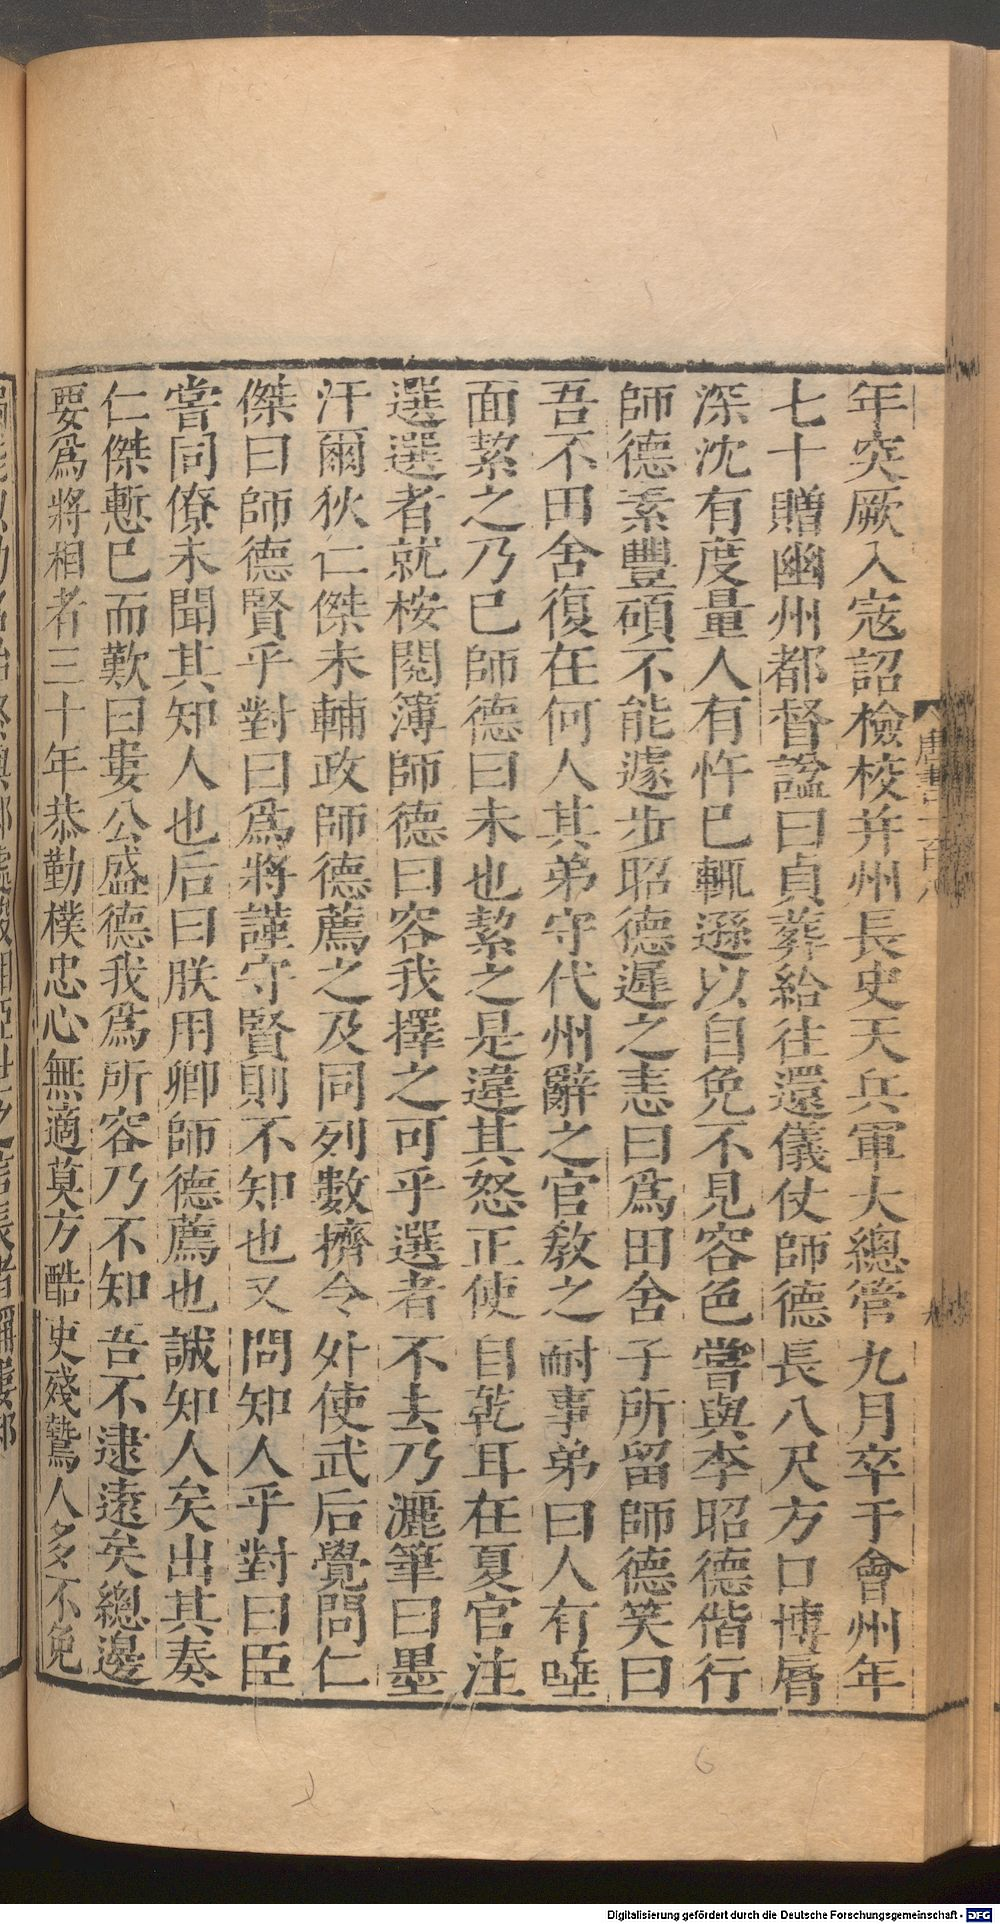 年突厥入寇詔檢校并州長史天兵軍大總管九月卒于會州年
七十贈幽州都督諡曰貞葬給往還儀仗師德長八尺方口博脣
深沈有度量人有忤己輒遜以自免不見容色嘗與李昭德偕行
師德素豐碩不能遽步昭德遲之恚曰爲田舍子所留師德笑曰
吾不田舍復在何人其弟守代州辭之官敎之耐事弟曰人有唾
面絜之乃已師德曰未也絜之是違其怒正使自乾耳在夏官注
選選者就桉閱簿師德曰容我擇之可乎選者不去乃灑筆曰墨
汙爾狄仁傑未輔政師德薦之及同列數擠令外使武后覺問仁
傑曰師德賢乎對曰爲將謹守賢則不知也又問知人乎對曰臣
嘗同僚未聞其知人也后曰朕用卿師德薦也誠知人矣出其奏
仁傑慙已而歎曰婁公盛德我爲所容乃不知吾不逮遠矣總邊
要爲將相者三十年恭勤樸忠心無適莫方酷吏殘鷙人多不免
唐書一百八
Digitalisierung gefördert durch die Deutsche Forschungsgemeinschaft - DFG